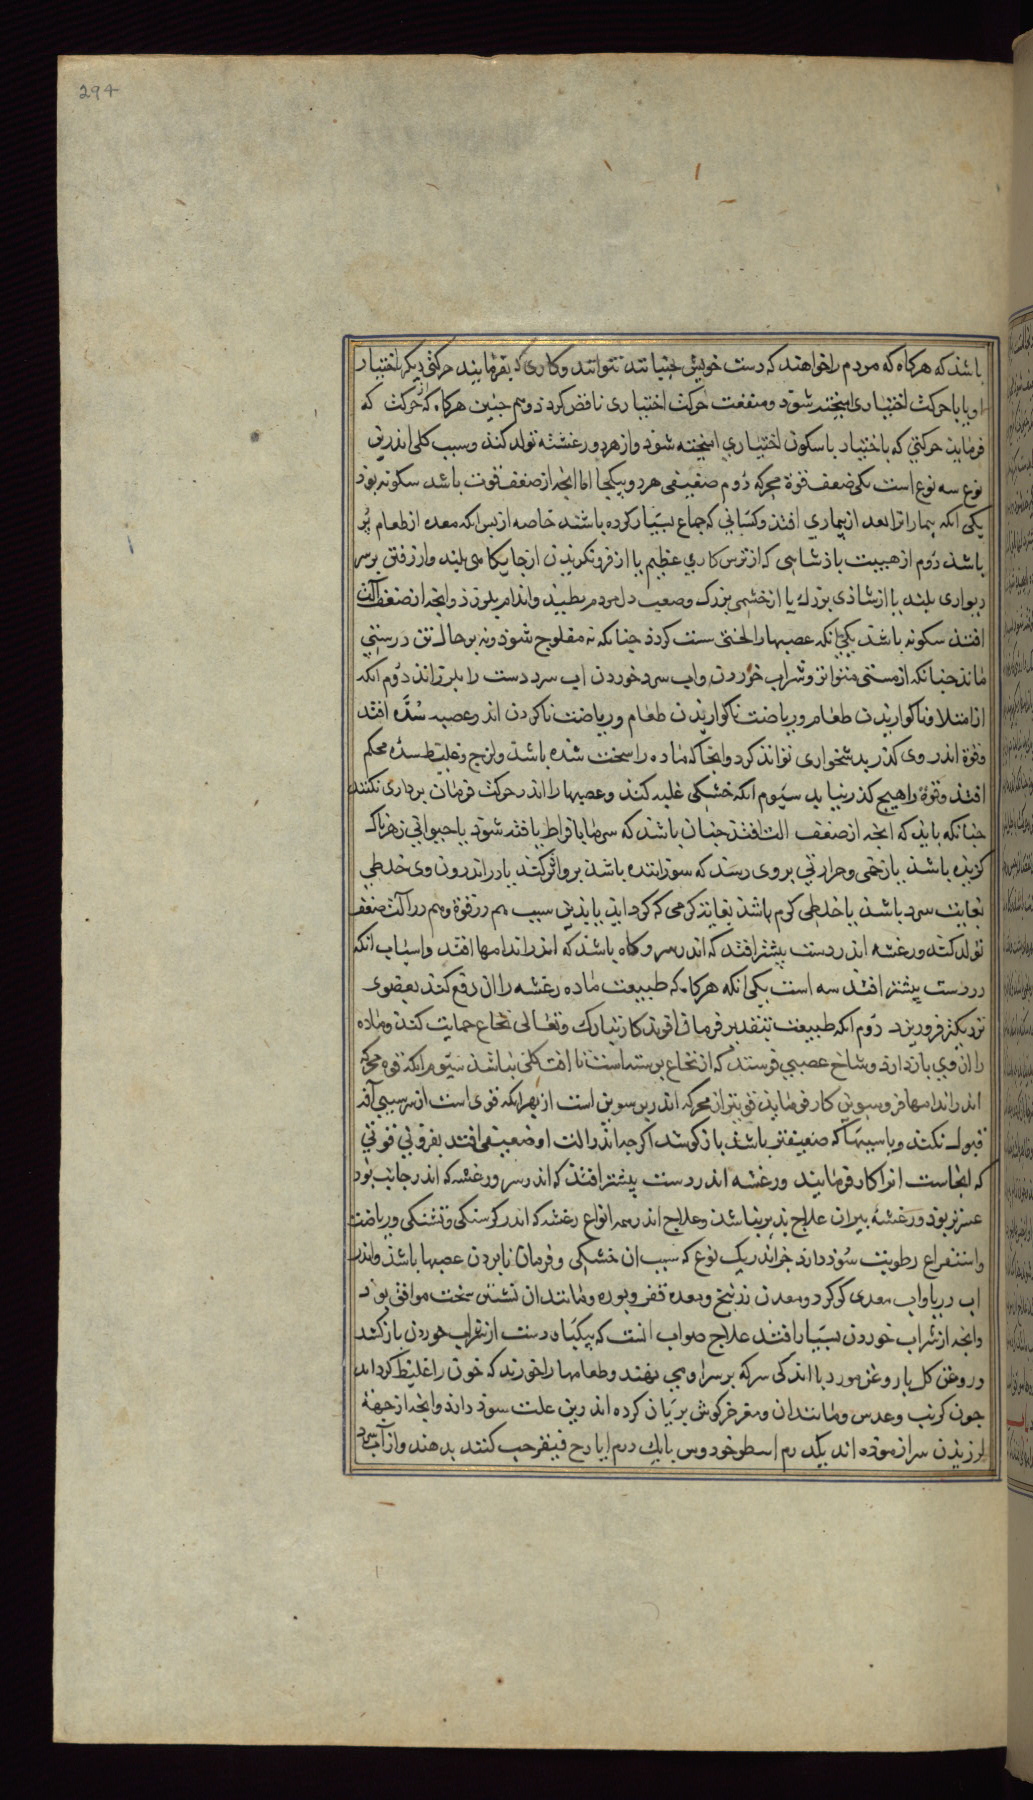 294
باشذ که هرکاه که مردم را خواهند که دست خویش بجنبانند نتوانند و کاری که بفرمایند حرکتی دیکر اختیار
او یا با حرکت اختیاری امیخته شود و منفعت حرکت اختیاری ناقص کردد و هم جنین هرکاه که حرکت که
فرماید حرکتی که باختیار باسکون اختیاری امیخته شود و از هر دو رعشه تولد کند و سبب کلی اندرین
نوع سه نوع است یکی ضعف قوة محرکه دُوم ضعیفی هر دو بیکجا اما انجه از ضعف قوت باشد سکونه بود
یکی انکه بیمارانرا بعد از بیماری افتد و کسانی که جماع بسیار کرده باشند خاصه از بس انکه معده از طعام پُر
باشد دُوم از هیبت باذشاهی که از ترس کاری عظیم یا از فرونکریدن از جایکاهی بلند و از رفتن بر سر
دیواری بلند یا از شاذی بزرك یا از خشمی بزرک و صعب دل مردم بطپد و اندام بلرزد و انجه از ضعف الت
افتد سکونه باشد یکی انکه عصبها را لختی سست کردد جنانکه نه مفلوج شود و نه بر حال تن درستی
ماند جنانکه از مستی متواتر و شراب خوردن واب سرد خوردن اب سرد دست را بلرزاند دُوم انکه
از امتلا و ناکواریدن طعام و ریاضت ناکواریدن طعام و ریاضت ناکردن اندر عصبه سُدّه افتد
وقوة اندر وی کذر بدشخواری تواند کرد وانجا که ماده را سخت شده باشد ولزج وغلیظ سده محکم
افتد وقوة را هیج کذر نیابد سیوم انکه خشکی غلبه کند و عصبها را اندر حرکت فرمان برداری نکنند
جنانکه باید که انجه از ضعف الت افتد جنان باشد که سرما یا افراط یافته شود یا حیوانی زهرناک
کزیده باشد یا زخمی و حرارتی بروی رسد که سوزاننده باشد برو اثر کند یا در اندرون وی خلطی
بغایت سرد باشد یا خلطی کرم باشد بغایت کرمی که کرد اید یا بذین سبب هم در قوة و هم در الت ضعف
تولد کند و رعشه اندر دست بیشتر افتد که اندر سر و کاه باشد که اندر اندامها افتد و اسباب انکه
در دست بیشتر افتد سه است یکی انکه هرکاه که طبیعت ماده رعشه را ان دفع کند بعضوی
نزدیکتر فرو ریزد دُوم انکه طبیعت بتقدیر فرمان افریدکار تبارک و تعالی نخاع حمایت کند و ماده
را از وی باز دارد و شاخ عصبی فرستد که از نخاع برسته است تا افت کلی نباشد سیوم انکه قوة محرکه
اندر اندامها فرو سوین کار فرماید قویتر از محرکه اندر بر سوین است از بهر انکه قوی است از هر سببی آفه
قبول نکند و با سببها که ضعیفتر باشد باز کوشد اکرجه اندر الت او ضعیفی افتد بفزونی قوتی
که انجاست انرا کار فرمایند و رعشه اندر دست بیشتر افتد که اندر سر و رعشه که اندر جانب بود
عسرتر بود و رعشهٔ پیران علاج پذیر نباشد و علاج اندر همه انواع رعشه که اندر کرسنکی و تشنکی و ریاضت
و استفراغ رطوبت سُوذ دارد جز اندر یک نوع که سبب ان خشکی و فرمان نابردن عصبها باشد و اندر
اب دریا واب معدن کوکرد و معدن زرنیخ و معده قفر و بوره و مانند ان نشستن سخت موافق بود
وانجه از شراب خوردن بسیار افتد علاج صواب انست که بیکباره دست از شراب خوردن باز کشد
و روغن کل یا روغن مورد با اندکی سرکه بر سر او همی نهند و طعامها را خورند که خون را غلیظ کرداند
جون کرنب و عدس و مانند ان و مغز خرکوش بریان کرده اندرین علت سود دارد و انجه از جههٔ
لرزیدن سر ازموده اند یکدرم اسطوخودوس بایك درم ایارج فیقرا حب کنند بدهند و از آب سرد